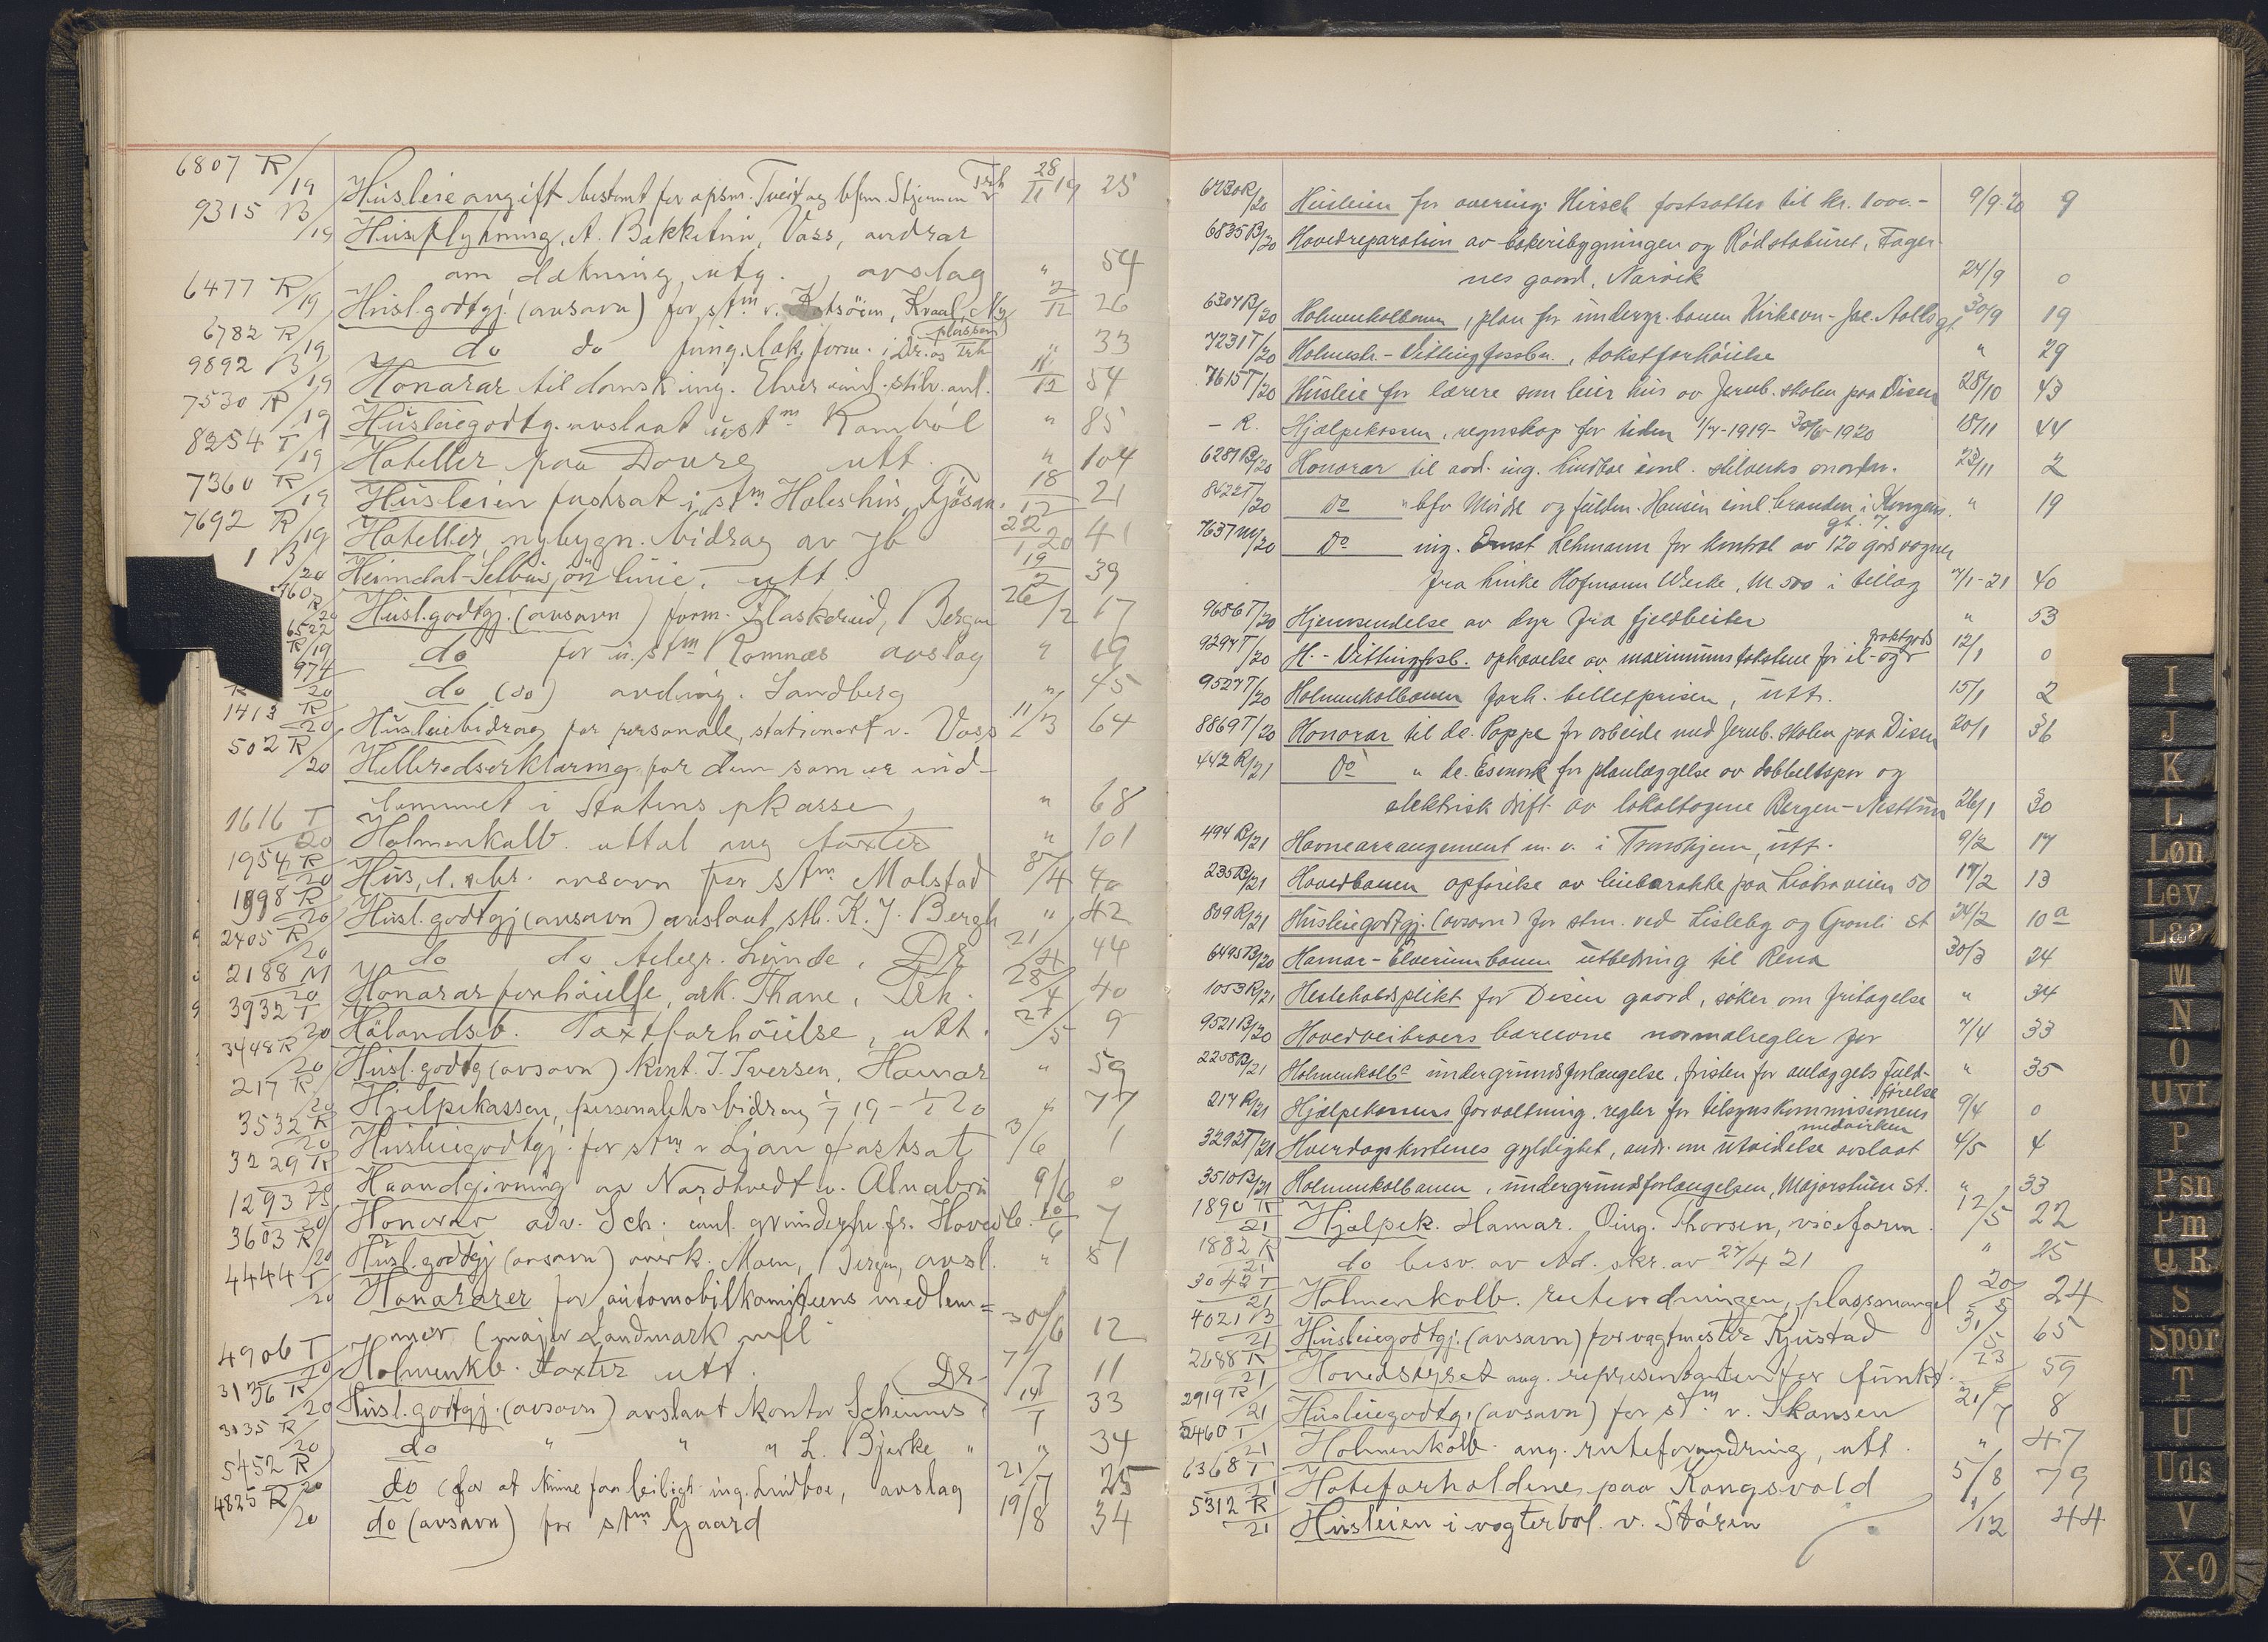 6807 R/19 Husleieangift bestemt for opsm. Tveit og bfm. Stjernen Trh 28/11 19 25
9315 B/19 Husflytning, A. Bakketun, Voss, andrar
om dækning utg., avslag " 54
6477 R/19 Husl.godtgj. (avsavn) for stm v. Kotsöien, Kvaal, 2/12 26
6782 R/19 do do fung. lok. form. i Dr. og Trh " 33
9892 B/19 Honorar til dansk ing. 11/12 54
7530 R/19 Husleiegodtg. avslaat u.stm Rambøl " 85
8254 T/19 Hoteller paa Dovre utt. " 104
7360 R/19 Husleien fastsat i stm Holes hus, Fjösan. 18/12 21
7692 R/19 Hoteller, nybygn. bidrag av Jb 22/1 20 41
1 B/20 Heimdal-Selbusjön linie, utt. 19/2 39
Husl.godtgj. (avsavn) form. Flaskerud, Bergen 26/2 17
6522 R/19 do for u.stm Romnæs avslag " 19
974 R/20 do (do) andrag. Sandberg " 45
1413 R/20 Husleiebidrag for personale, stationert v. Voss 11/3 64
502 R/20 Helbredserklæring for dem som er ind-
lemmet i Statens pkasse " 68
1616 T/20 Holmenkolb. uttal ang taxter " 101
1954 R/20 Hus, avsavn for stm Molstad 8/4 40
1998 R/20 Husl.godtgj (avsavn) avslaat stb. K. J. Bergh " 42
2405 R/20 do do telegr. Lunde, Dr 21/4 44
2188 M/20 Honorarforhöielse, ark. Thane, Trh. 28/4 40
3932 T/20 Hölandsb. Taxtforhöielse, utt. 27/5 9
3448 R/20 Husl.godtg (avsavn) kont. I. Iversen, Hamar " 59
217 R/20 Hjelpekassen, personalets bidrag 1/7 19 - 1/1 20 " 77
3532 R/20 Husleiegodtgj. for stm v Ljan fastsat 3/6 1
3229 R/20 Haandgivning av Nordtvedt v. Alnabru 9/6 0
1293 B/20 Honorar adv. Sch. anl. grunderhv. fr. Hovedb. 10/6 7
3603 R/20 Husl.godtgj (avsavn) overk. Moen, Bergen, avsl. " 81
4444 T/20 Honorarer for automobilkomiteens medlem=
mer (major Landmark mfl 30/6 12
4906 T/20 Holmenkb. taxter utt. 7/7 11
3136 R/20 Husl.godtgj. (avsavn) avslaat kontor Scheimes Dr. 14/7 33
3135 R/20 do " " " L. Bjerke " " 34
5452 R/20 do (for at kunne faa leiligh. ing. Lindboe, avslag 21/7 25
4825 R/20 do (avsavn) for stm Gaard 19/8 34
6230 R/20 Husleien for overing. Hirsch fastsættes til kr. 1000.- 9/9 20 9
6835 B/20 Hovedreparation av bakeribygningen og Rödstaburet, Fager-
nes gaard, Narvik 24/9 0
6304 B/20 Holmenkolbanen, plan for undergr. banen Kirkevn - Joc. Nollsgt. 30/9 19
7231 T/20 Holmestr. - Vittingfossbn., takstforhöielse " 29
7615 T/20 Husleie for lærere som leier hus av Jernb. skolen paa Disen 28/10 43
- R. Hjælpekassen, regnskap for tiden 1/7-1919 - 30/6-1920 18/11 44
6287 B/20 Honorar til avd. ing. Lindboe anl. stilverks anordn. 23/11 2
8422 T/20 Do " bfv Moide og fuldm. Hansen anl. branden i Kongens gt. 7. " 19
7637 M/20 Do ing. Ernst Lehmann for kontrol av 120 godsvogner
fra Linke Hofmann Werke, M 500 i tillæg 7/1-21 40
9686 T/20 Hjemsendelse av dyr fra fjeldbeiter " 53
9297 T/20 H. - Vittingfosb. ophævelse av maximumstakstene for il- og fraktgods 12/1 0
9527 T/20 Holmenkolbanen forh. billetprisen, utt. 15/1 2
8869 T/20 Honorar til dr. Poppe for arbeide med Jernb. skolen paa Disen 20/1 36
442 R/21 Do " de. Esmark for planlæggelse av dobbeltspor og
elektrisk drift av lokaltogene Bergen - Nesttun 26/1 30
494 B/21 Havnearrangement m. v. i Trondhjem, utt. 9/2 17
235 B/21 Hovedbanen opförelse av liebarakke paa Liabroveien 50 17/2 13
809 R/21 Husleiegodtgj. (avsavn) for stm. ved Lisleby og Grønli st 24/2 10 a
6495 B/20 Hamar - Elverumbanen utbedring til Rena 30/3 24
1053 R/21 Hesteholdsplikt for Disen gaard, söker om fritagelse " 34
9521 B/20 Hovedveibroers bæreevne normalregler for 7/4 33
2258 B/21 Holmenkolbn undergrundsforlængelse, fristen for anlæggets fuld-
förelse " 35
217 R/21 Hjælpekassens forvaltning. regler for tilsynskommissionens medvirken 9/4 0
3292 T/21 Hverdagskortenes gyldighet, andr. om utvidelse avslaat 4/5 4
3510 B/21 Holmenkolbanen, undergrundsforlængelsen, Majorstuen st. " 33
1890 R/21 Hjælpek. Hamar. Oing. Thorsen, viceform. 12/5 22
1882 R/21 do besv. av Ad. skr. av 27/4 21 " 25
3042 T/21 Holmenkolb. ruteordningen, plassmangel 20/5 24
4021 B/21 Husleiegodtgj. (avsavn) for vagtmester Kjustad 31/5 65
2688 R/21 Hovedstyret ang. representanten for funkt. 23/6 59
2919 R/21 Husleiegodtg. (avsavn) for stm v. Skansen 21/7 8
2460 T/21 Holmenkolb. ang. ruteforandring, utt. " 47
6368 T/21 Hoteforholdene paa Kongsvold 5/8 79
5312 R/21 Husleien i vogterbol. v. Stören 1/12 44
I
J
K
L
Løn
Lev.
Laa
M
N
O
Uvf
P
Psn
Pm
Q R
S
Spor
T
U
Uds
V
X-Ø